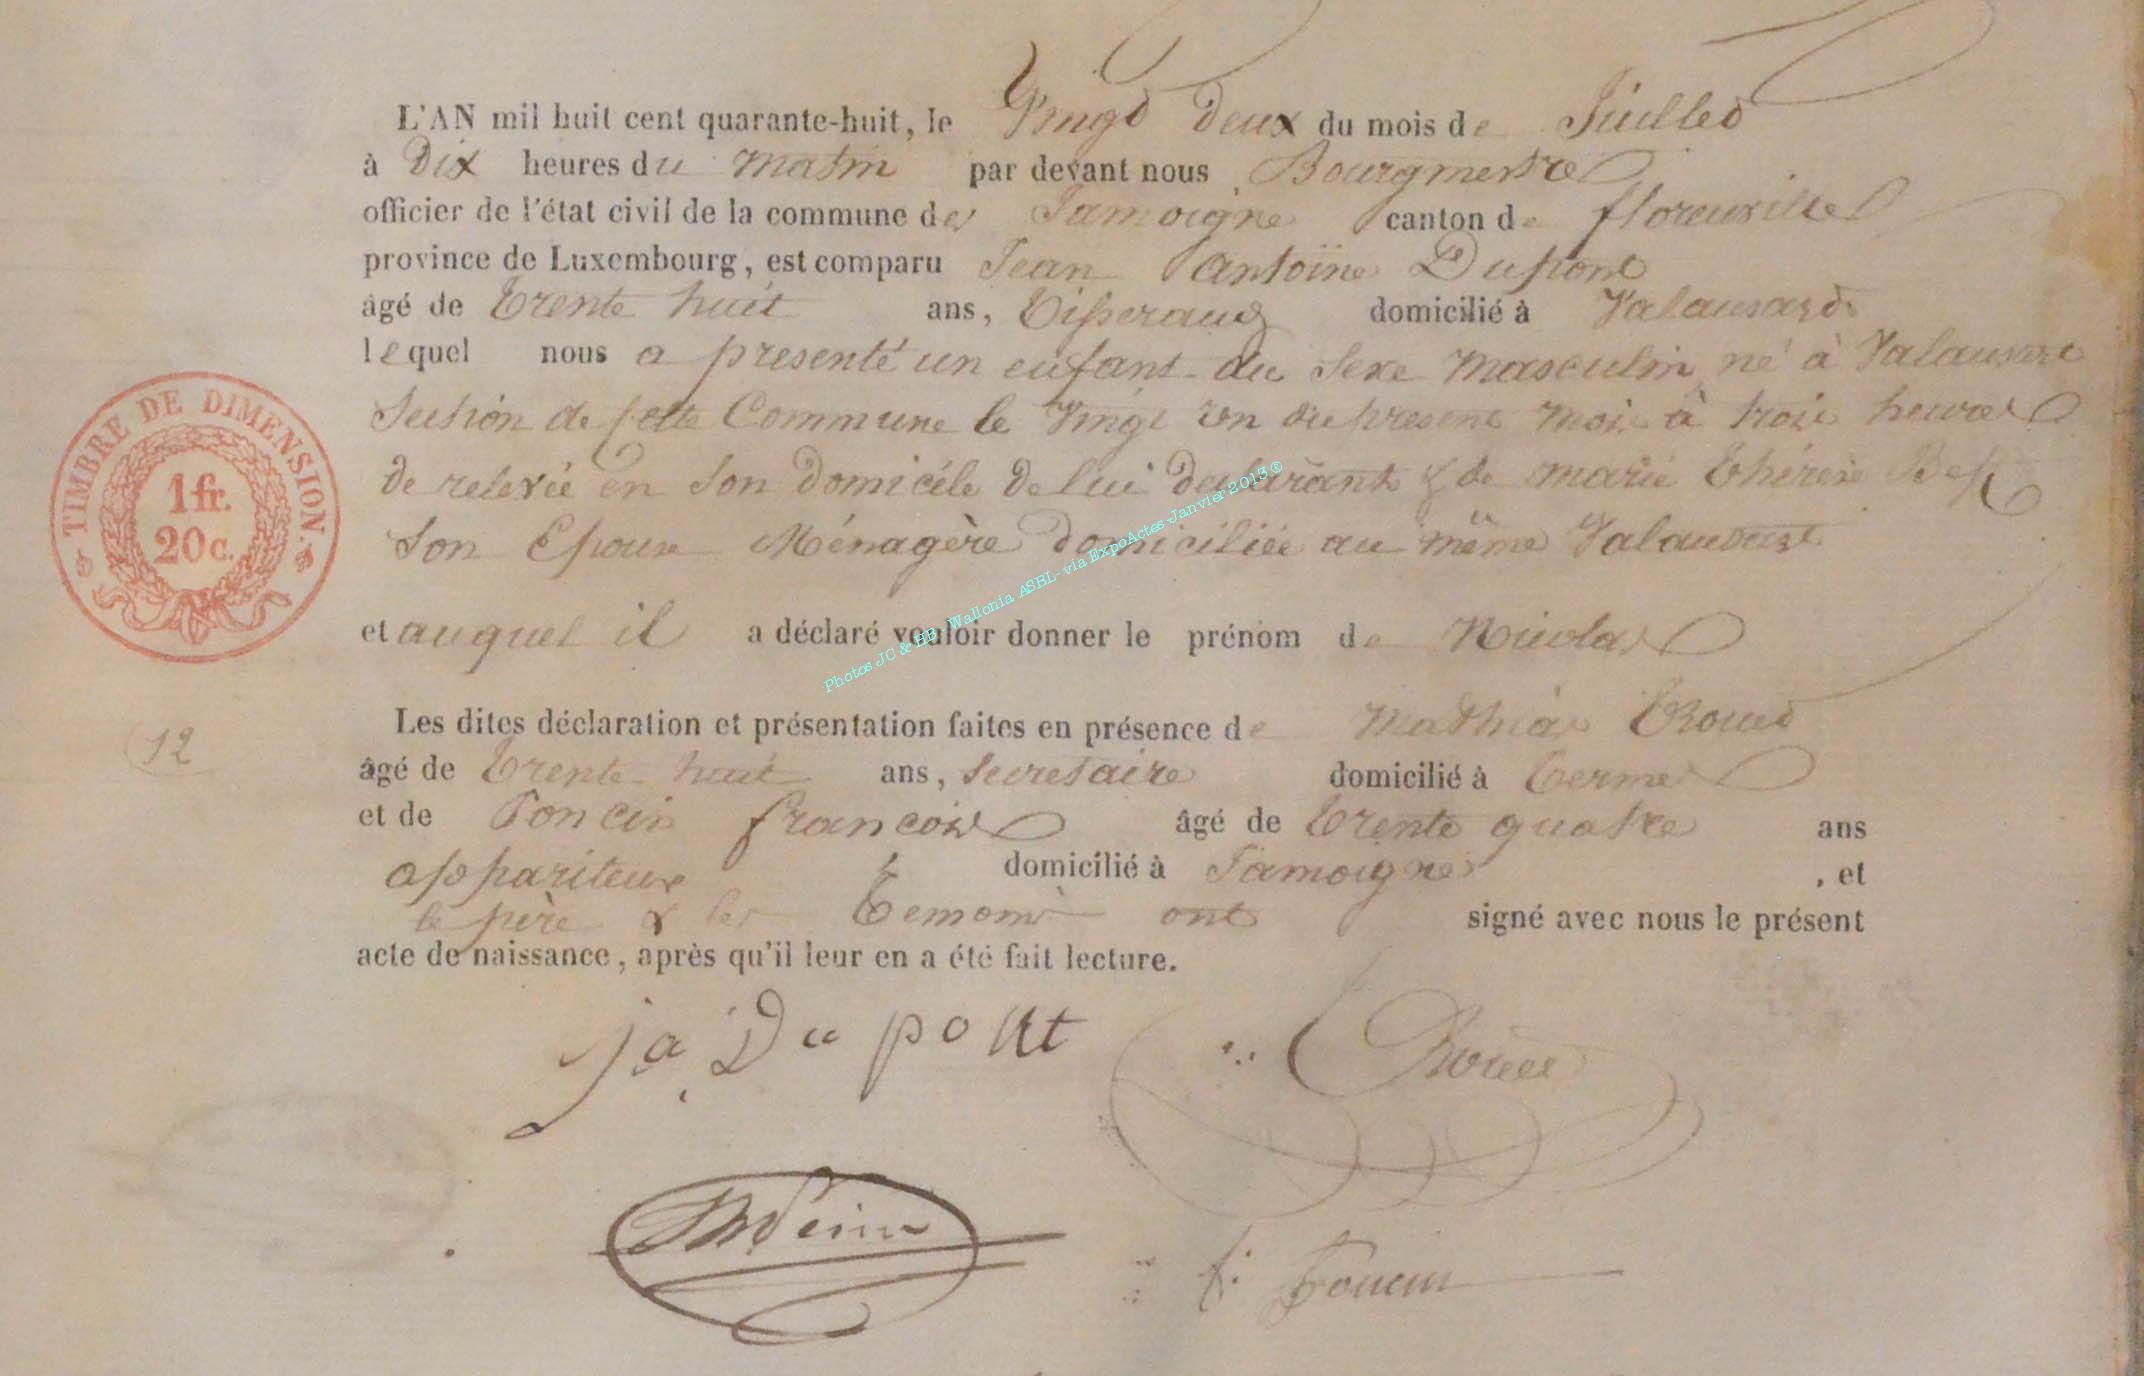 L'AN mil huit cent quarante-huit, le Vingt Deux du mois de Juillet
à Dix heures du Matin par devant nous Bourgmestre
officier de l'état civil de la commune de Jamoigne canton de florenville
province de Luxembourg, est comparu Jean Antoine Dupont
âgé de Trente huit ans, Tisserand domicilié à Valansart
lequel nous a presenté un enfant du Sexe Masculin né à Valansart
Section de cette Commune le Vingt un du present Mois à trois heures
de relevée en Son Domicile De lui Declarant & de Marie Thérèse
Son Epouse Ménagère Domiciliée au même Valansart
et auquel il a déclaré vouloir donner le prénom de Nicolas
Les dites déclaration et présentation faites en présence de Mathias
âgé de Trente huit ans, Secretaire domicilié à Termes
et de Poncin francois âgé de Trente quatre ans
appariteur domicilié à Jamoigne, et
le père & les Temoins ont signé avec nous le présent
acte de naissance, après qu'il leur en a été fait lecture.
ja Du pont
f. Poncin
TIMBRE DE DIMENSION.
1 fr.
20 c.
12
Photos JC & HB Wallonia ASBL - via ExpoActes - Janvier 2013 ®